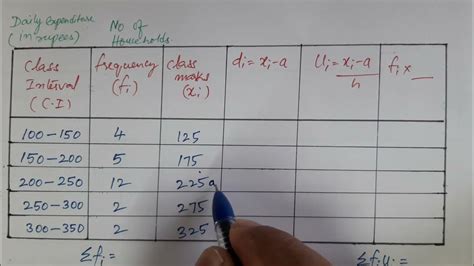 Daily expenditure
(in rupees)
No of
Households
Class
Interval
(C.I)
frequency
(fi)
class
marks
(xi)
di = xi - a
Ui = xi - a
h
fi x __
100 - 150 4 125
150 - 200 5 175
200 - 250 12 225a
250 - 300 2 275
300 - 350 2 325
Σfi =
Σfiui =